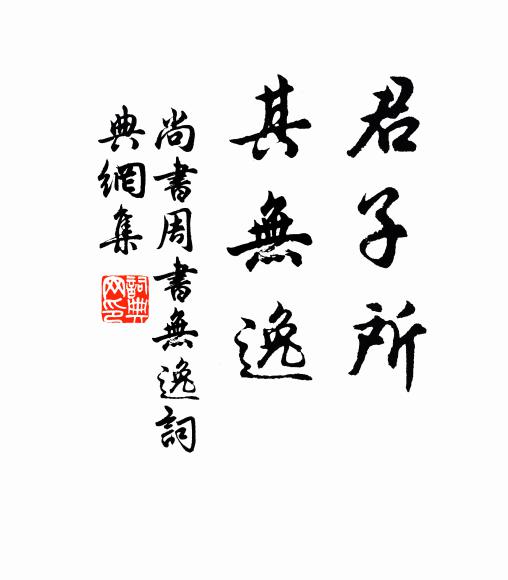 君子所
其無逸
尚書周書無逸詞
典網集
詞典
网印